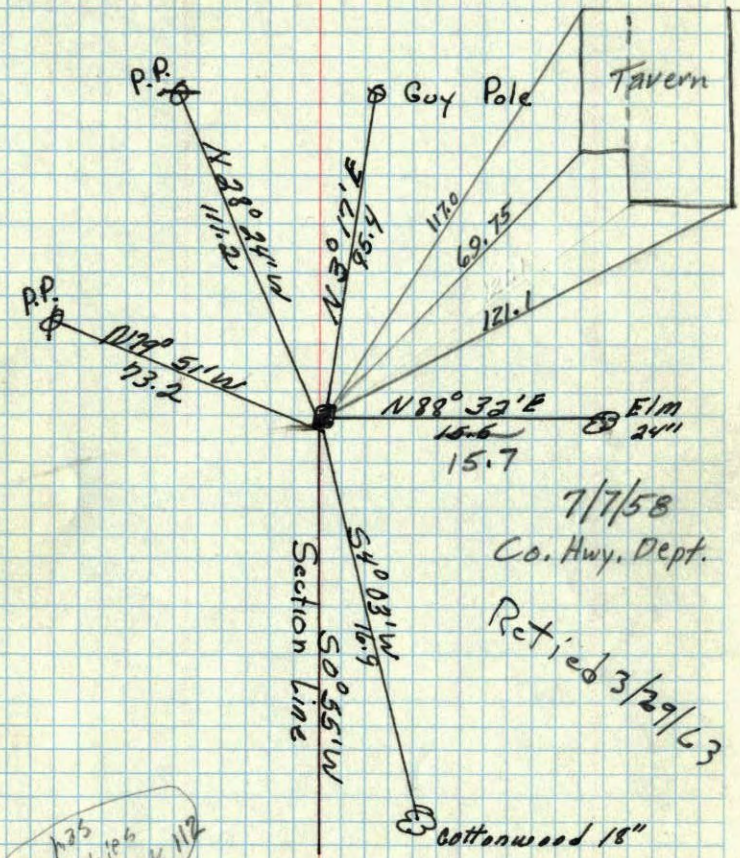 P.P.
Guy Pole
Tavern
N 28° 24' W
111.2
N 3° 17' E
95.4
117.0
69.75
121.1
P.P.
N79° 51' W
73.2
N88° 32' E
15.6
15.7
Elm
24"
7/7/58
Co. Hwy. Dept.
Retied 3/29/63
S4° 03' W
16.9
Section Line
S0° 55' W
Cottonwood 18"
has
ties
112